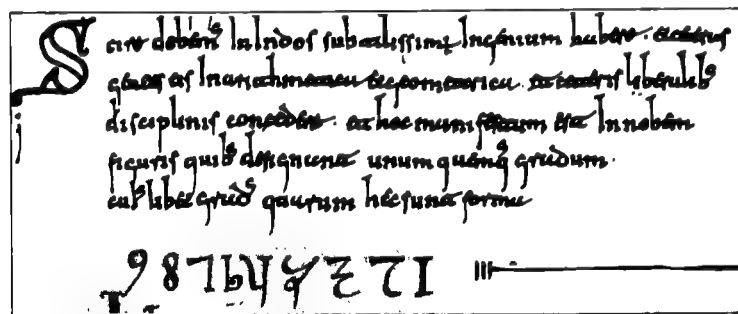 Scire debem⁹ In Indos subtilissime Ingenium habere. et ceteras
gentes eis In arithmetica et geometrica. et ceteris liberalib⁹
disciplinis concedere. et hoc manifestum est In nobem
figuris quib⁹ designant unum quemq⁹ gradum.
cui⁹libet grad⁹ quarum hec sunt forma
9 8 7 6 5 4 3 2 1